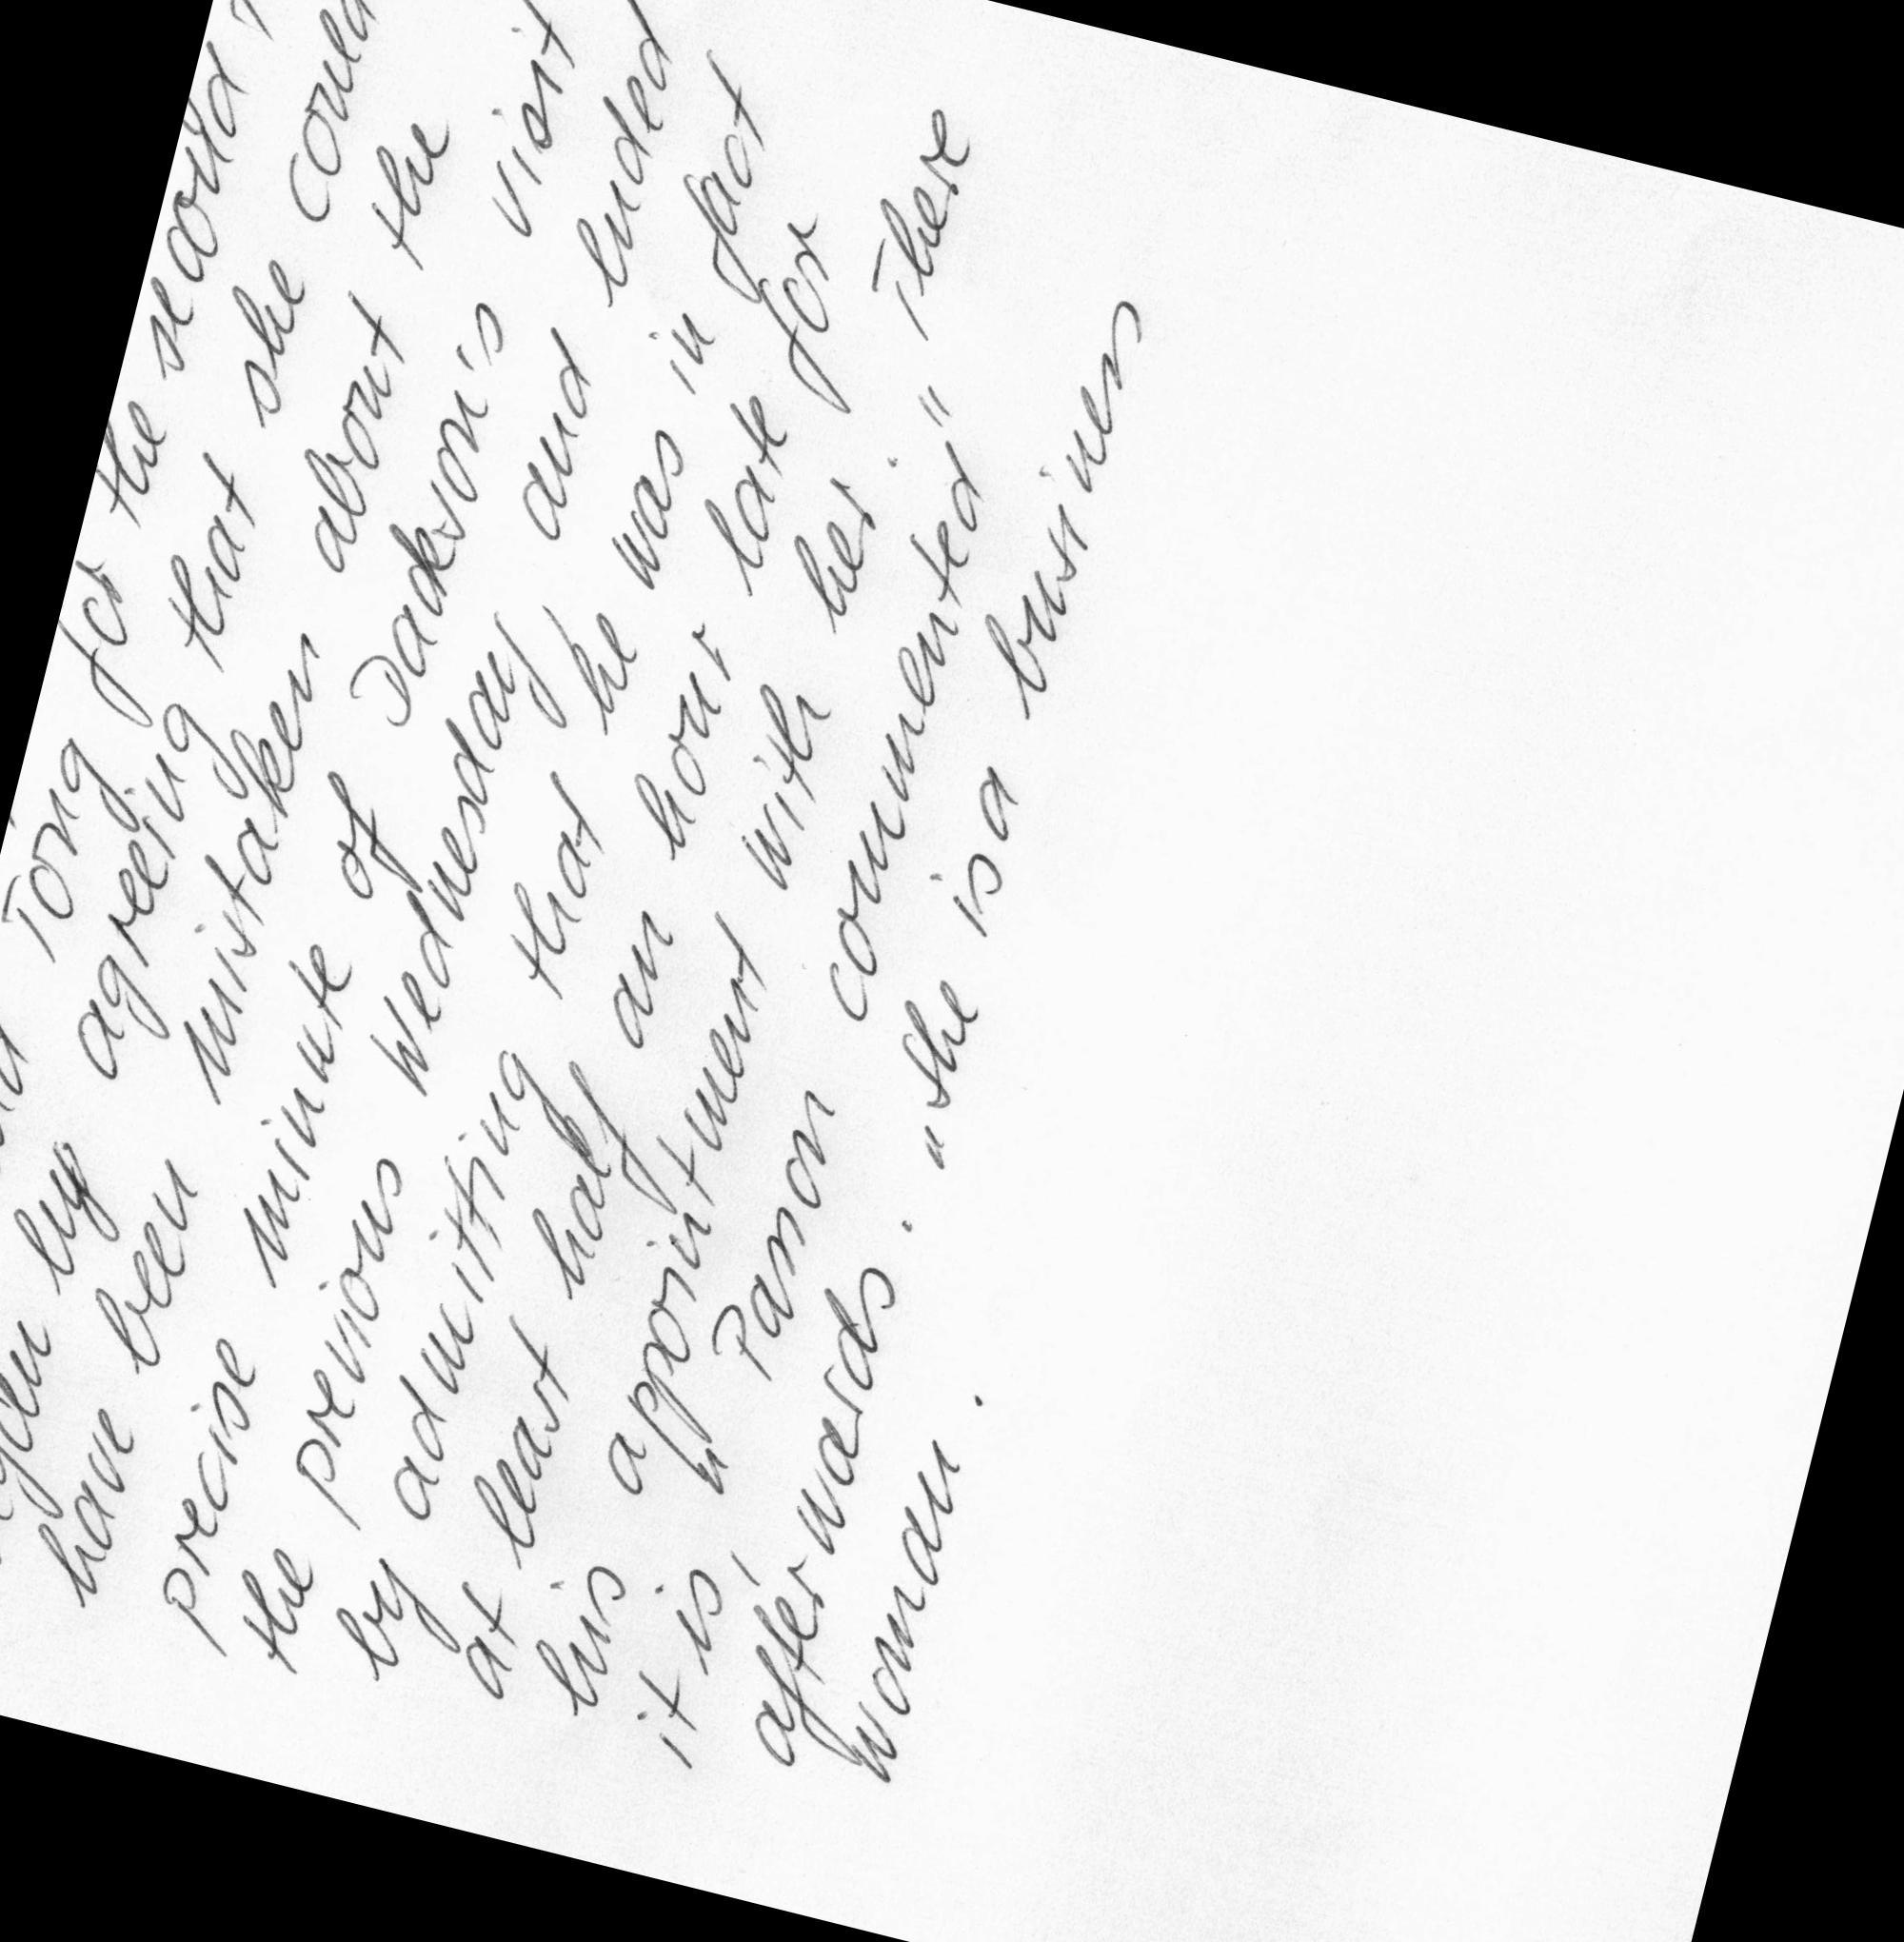 Tong for the second
by agreeing that she could
have been mistaken about the
precise minute of Dackson's visit
the previous Wednesday and ended
by admitting that he was in fact
at least half an hour late for
his appointment with her. "There
it is," Parson commented
afterwards. "She is a business
woman.